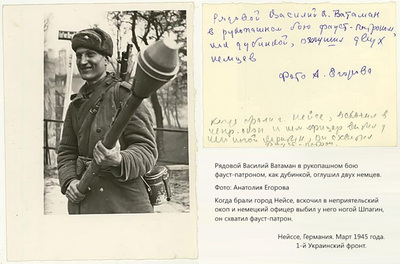 Рядовой Василий В. Ватаман
в рукопашном бою фауст-патроном,
как дубинкой, оглушил двух
немцев
Фото А. Егорова
когда брали г. Нейсе, вскочил в
непр. окоп и нем офицер выбил у
него ногой шпагин, он схватил
фауст-патрон.
Рядовой Василий Ватаман в рукопашном бою
фауст-патроном, как дубинкой, оглушил двух немцев.
Фото: Анатолия Егорова
Когда брали город Нейсе, вскочил в неприятельский
окоп и немецкий офицер выбил у него ногой Шпагин,
он схватил фауст-патрон.
Нейссе, Германия. Март 1945 года.
1-й Украинский фронт.